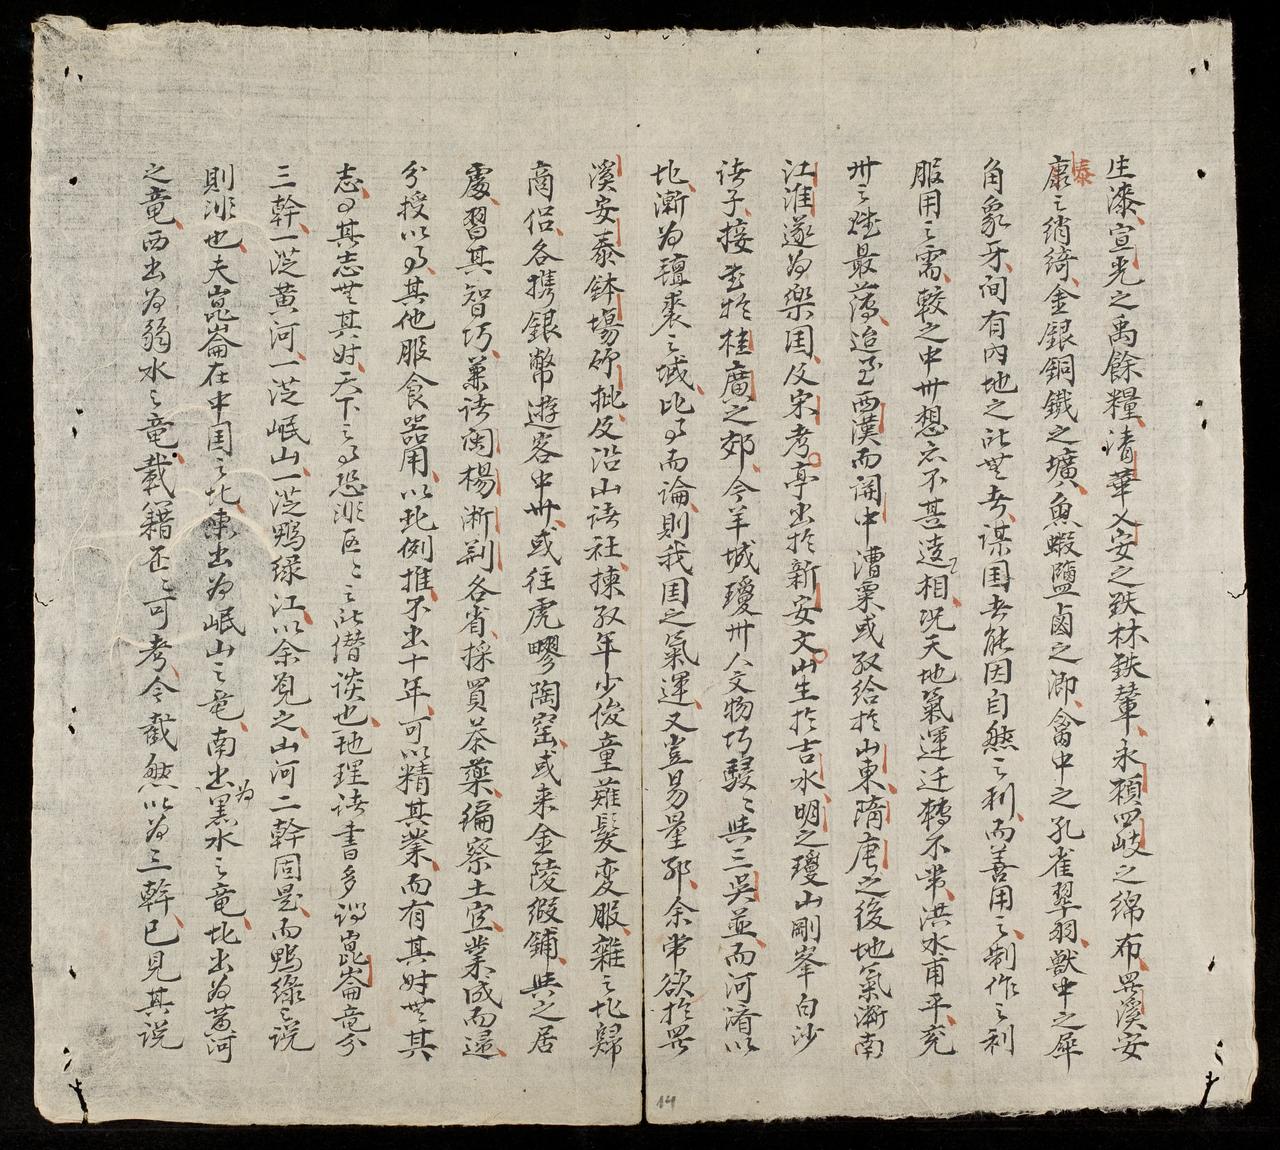 生漆宣光之禹餘糧清華乂安之鉄林鉄輦永順四岐之綿布畀溪安
泰
康之綃綺金銀銅鐵之壙魚蝦鹽鹵之澤禽中之孔雀翠羽獸中之犀
角象牙間有內地之所無者謀国者能因自然之利而善用之制作之利
服用之需較之中州想亦不甚遠相况天地氣運迁轉不常洪水甫平兗
州之賦最薄迨至西漢而関中漕粟或取給於山東隋唐之後地氣漸南
江淮遂為楽国及宋考亭出於新安文山生於吉水明之瓊山剛峯白沙
诸子接出於桂廣之郊今羊城瓊州人文物巧駸〻與三吳並而河濟以
北漸為氊裘之域比〻而論則我国之氣運又豈易量耶余常欲於畀
溪安泰鉢塲硎批及沿山诸社揀取年少俊童薙髮变服雜之北歸
商侣各携銀幣遊客中州或往虎膠陶窑或来金陵缎鋪與之居
處習其智巧兼诸闽楊浙荆各省採買茶藥徧察土宜業成而還
分授以〻其他服食器用以此例推不出十年可以精其業而有其时無其
志〻其志無其时天下之〻恐非区〻之所僭谈也地理诸書多謂崑崙竜分
三幹一從黄河一從岷山一從鴨綠江以余覌之山河二幹固是而鴨綠之说
則非也夫崑崙在中国之北東出為岷山之竜南出為黑水之竜北出為黄河
之竜西出為弱水之竜載籍歪〻可考今截然以為三幹已見其説
14